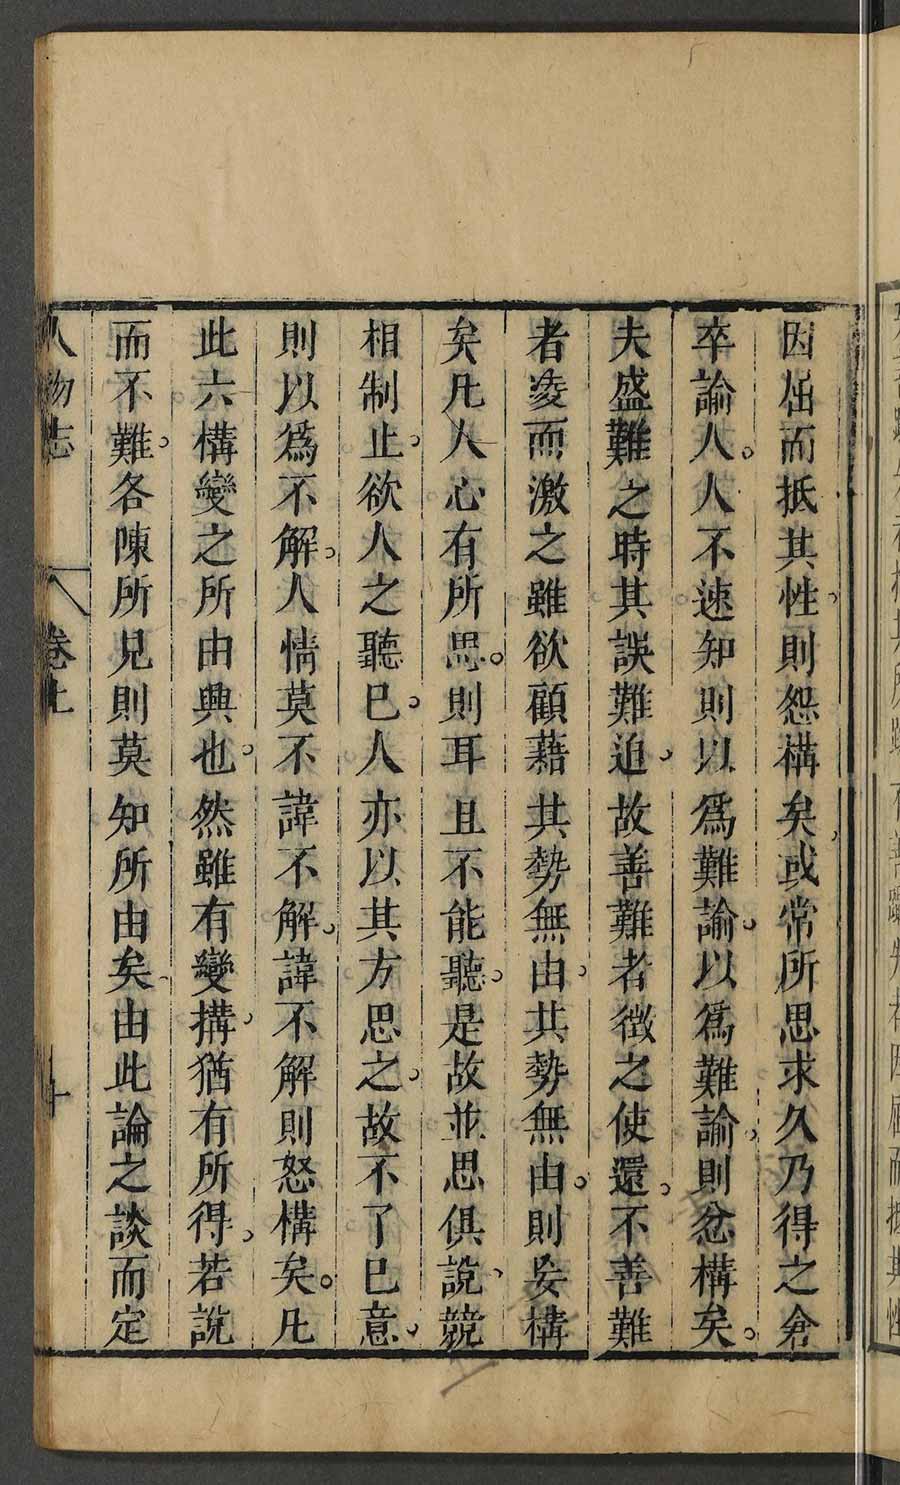 因屈而抵其性則怨構矣或常所思求久乃得之倉
卒論人人不速知則以爲難諭以爲難諭則忿構矣
夫盛難之時其誤難迫故善難者徵之使還不善難
者凌而激之雖欲顧藉其勢無由其勢無由則妄構
矣凡人心有所思則耳且不能聽是故並思俱說競
相制止欲人之聽已人亦以其方思之故不了已意
則以爲不解人情莫不諱不解諱不解則怒構矣凡
此六構變之所由興也然雖有變搆猶有所得若說
而不難各陳所見則莫知所由矣由此論之談而定
人物志 卷上 十